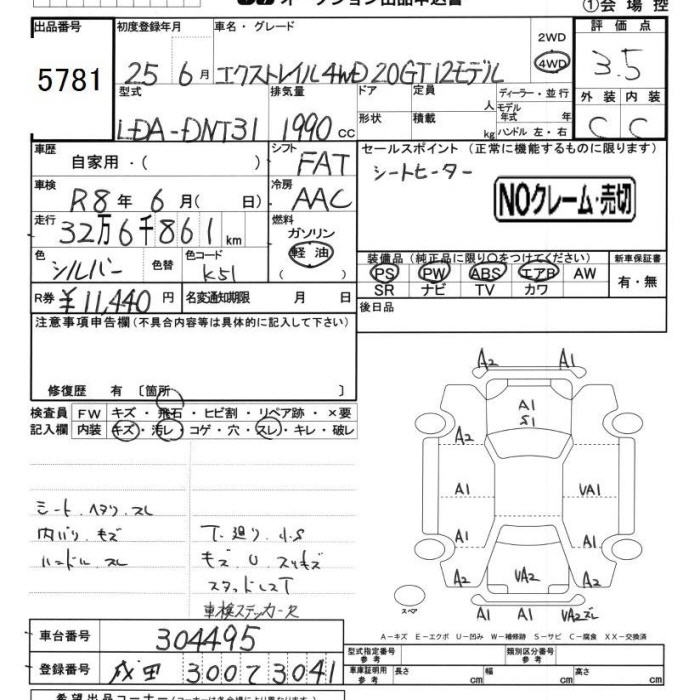 ①会場控
出品番号
5781
初度登録年月
25 6月
車名・グレード
エクストレイル4WD 20GT 12モデル
2WD
4WD
評価点
3.5
外装 内装
C C
型式
LDA-DNT31
排気量
1990 cc
ドア
形状
定員
人
積載
kg
ディーラー・並行
モデル年式 年
ハンドル 左・右
車歴
自家用・( )
シフト
FAT
セールスポイント (正常に機能するものに限ります)
シートヒーター
NOクレーム・売切
車検
R8年 6月( 日)
冷房
AAC
走行
32万6千861km
燃料
ガソリン
軽油
( )
色
シルバー
色替
色コード
K51
装備品 (純正品に限り○をつけてください)
PS PW ABS エアB AW
SR ナビ TV カワ
新車保証書
有・無
R券 ¥11,440円
名変通知期限 月 日
後日品
注意事項申告欄(不具合内容等は具体的に記入して下さい)
修復歴 有 〔箇所 〕
検査員記入欄
FW キズ・飛石・ヒビ割・リペア跡・×要
内装 キズ・汚レ・コゲ・穴・スレ・キレ・破レ
シート.ヘタリ.スレ
内バリ.キズ
ハンドル.スレ
下.廻り.小.S
キズ.U.スリキズ
スタッドレス下
車検ステッカーX
A2 A1
A1
S1
A2
A1 VA1
A1 A1
A2 VA2 A2
スペア
A1 A1 VA2ズレ
A-キズ E-エクボ U-凹み W-補修跡 S-サビ C-腐食 XX-交換済
車台番号
304495
登録番号
成田 300 て 3041
型式指定番号
参考
類別区分番号
参考
車庫証明用
参考
長さ cm
幅 cm
高さ cm